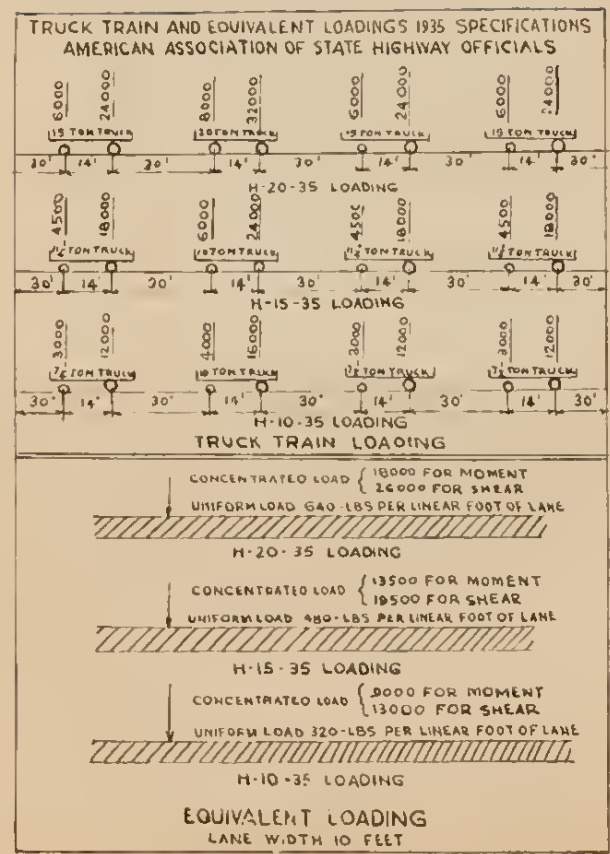 TRUCK TRAIN AND EQUIVALENT LOADINGS 1935 SPECIFICATIONS
AMERICAN ASSOCIATION OF STATE HIGHWAY OFFICIALS
6000 24000 8000 32000 6000 24000 6000 24000
15 TON TRUCK 20 TON TRUCK 15 TON TRUCK 15 TON TRUCK
30' 14' 30' 14' 30' 14' 30' 14' 30'
H-20-35 LOADING
4500 18000 6000 24000 4500 18000 4500 18000
11¼ TON TRUCK 15 TON TRUCK 11¼ TON TRUCK 11¼ TON TRUCK
30' 14' 30' 14' 30' 14' 30' 14' 30'
H-15-35 LOADING
3000 12000 4000 16000 3000 12000 3000 12000
7½ TON TRUCK 10 TON TRUCK 7½ TON TRUCK 7½ TON TRUCK
30' 14' 30' 14' 30' 14' 30' 14' 30'
H-10-35 LOADING
TRUCK TRAIN LOADING
CONCENTRATED LOAD { 18000 FOR MOMENT
26000 FOR SHEAR
UNIFORM LOAD 640-LBS PER LINEAR FOOT OF LANE
H-20-35 LOADING
CONCENTRATED LOAD { 13500 FOR MOMENT
19500 FOR SHEAR
UNIFORM LOAD 480-LBS PER LINEAR FOOT OF LANE
H-15-35 LOADING
CONCENTRATED LOAD { 9000 FOR MOMENT
13000 FOR SHEAR
UNIFORM LOAD 320-LBS PER LINEAR FOOT OF LANE
H-10-35 LOADING
EQUIVALENT LOADING
LANE WIDTH 10 FEET